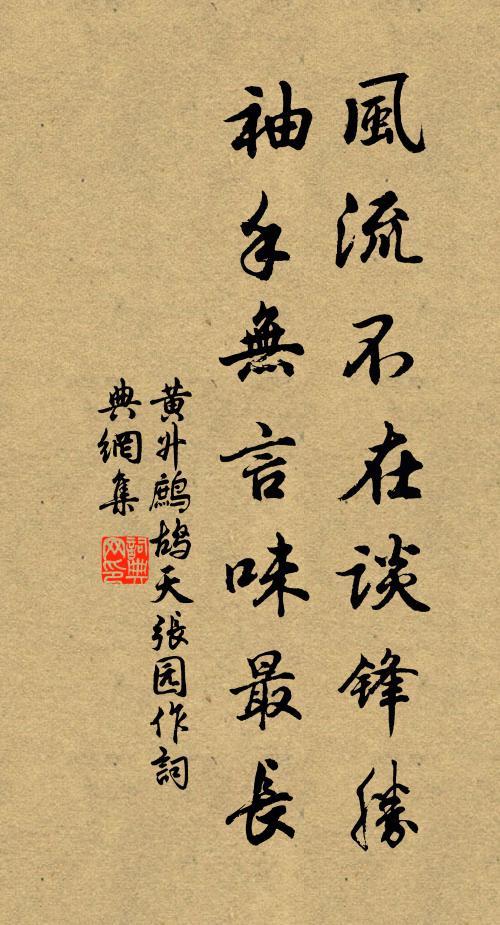 風流不在談鋒勝
袖手無言味最長
黄升鷓鴣天張园作詞
典網集
詞典网印